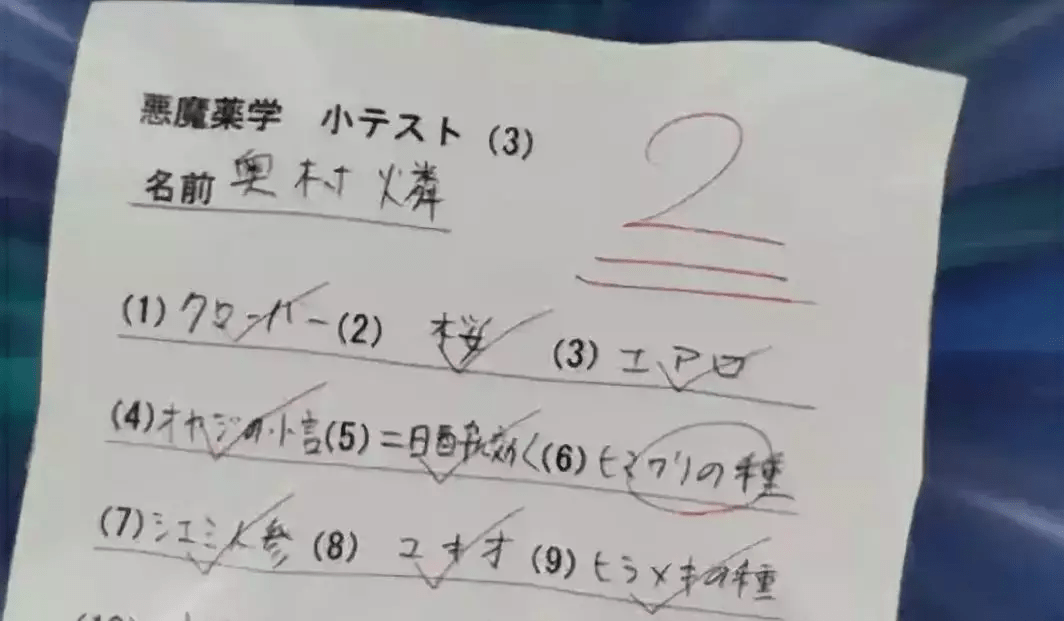 悪魔薬学 小テスト (3)
名前 奥村 燐
2
(1) クローバー (2) 桜 (3) エアロ
(4) オヤジの小言 (5) 二日酔に効く (6) ヒマワリの種
(7) シエミ人参 (8) ユキオ (9) ヒラメキの種